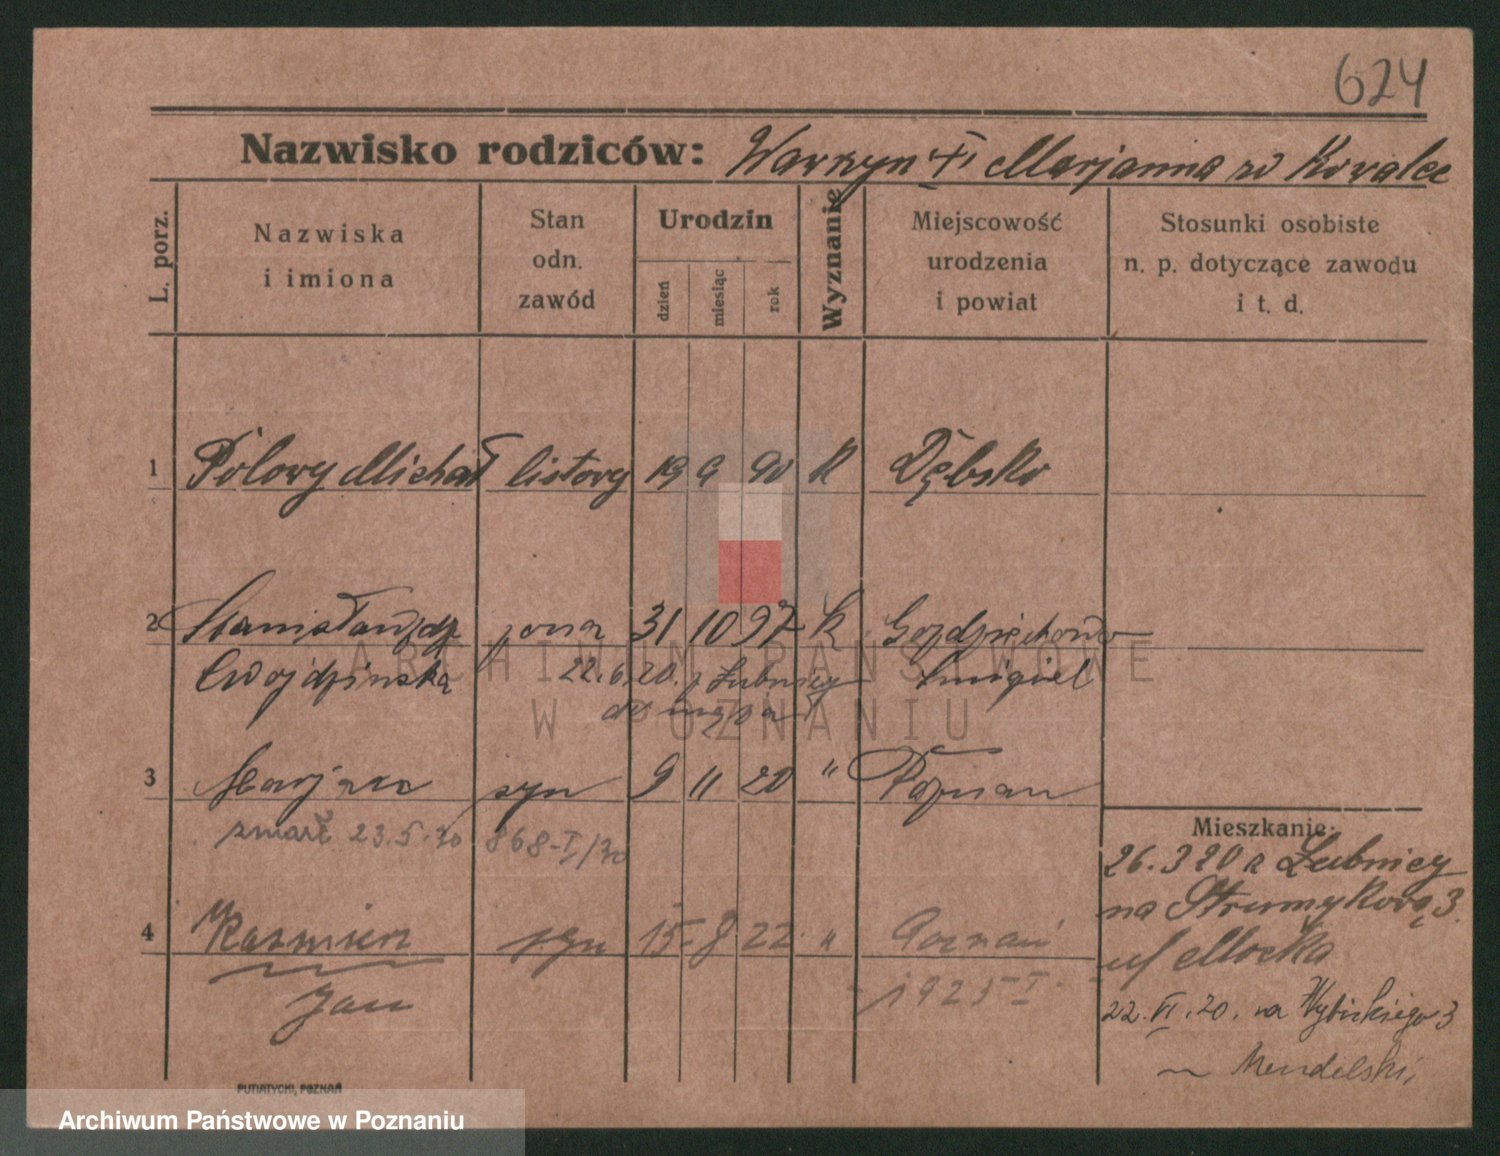 624
Nazwisko rodziców: Wawrzyn Marjanna Kowalec
L. porz.
Nazwiska
i imiona
Stan
odn.
zawód
Urodzin
dzień
miesiąc
rok
Wyznanie
Miejscowość
urodzenia
i powiat
Stosunki osobiste
n. p. dotyczące zawodu
i t. d.
1 Polowy Michał listowy 19 9 90 K Dębsko
2 Stanisława żona 31 10 97 K
Cwojdzińska 22.6.20. z Żubnicy Śmigiel
do męża
3 Marjan syn 9 11 20 " Poznań
zmarł 23.5.30 868-I/30
4 Kazmierz syn 15 8 22 " Poznań
Jan 1925 I
Mieszkanie:
26.3 20 z Żubnicy
na Strumykową 3.
u/ Mocka
22.VI.20. na Wybickiego 3
Mendelski
PUTIATYCKI, POZNAŃ
ARCHIWUM PAŃSTWOWE
W POZNANIU
Archiwum Państwowe w Poznaniu